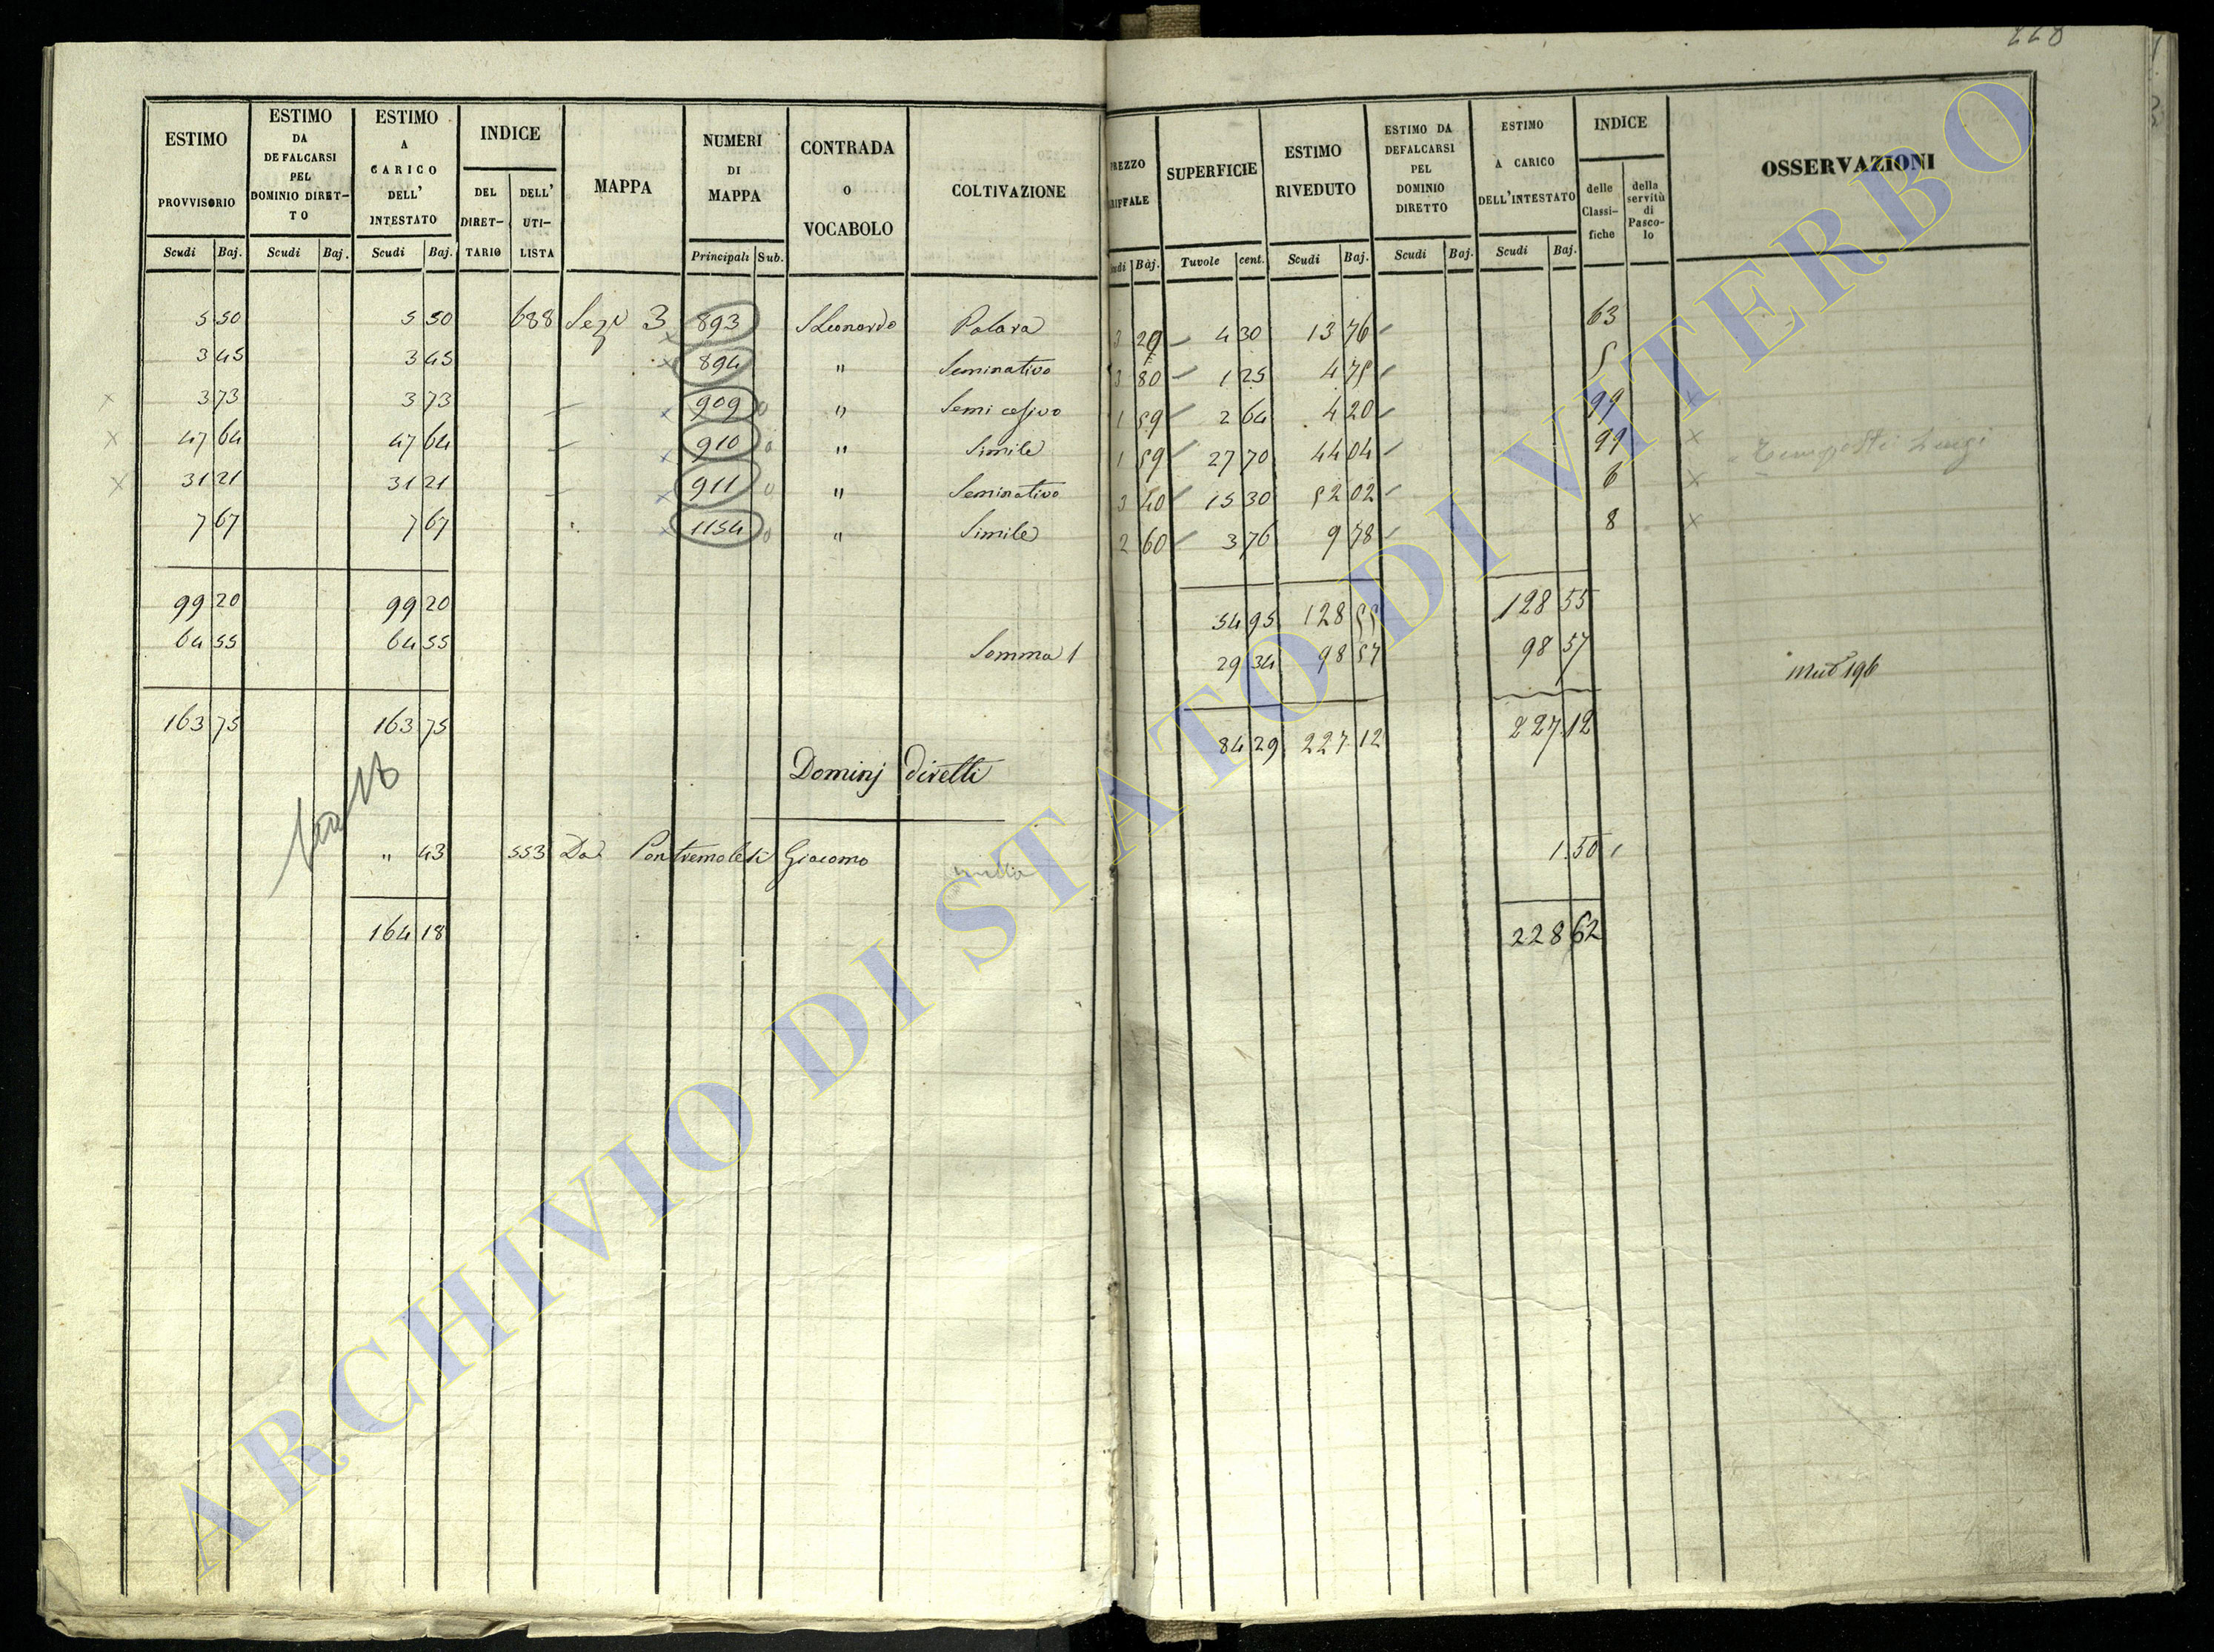 228
ESTIMO PROVVISORIO Scudi Baj. | ESTIMO DA DEFALCARSI PEL DOMINIO DIRETTO Scudi Baj. | ESTIMO A CARICO DELL' INTESTATO Scudi Baj. | INDICE DEL DIRETTARIO | DELL' UTILISTA | MAPPA | NUMERI DI MAPPA Principali Sub. | CONTRADA O VOCABOLO | COLTIVAZIONE | PREZZO TARIFFALE Scudi Baj. | SUPERFICIE Tavole cent. | ESTIMO RIVEDUTO Scudi Baj. | ESTIMO DA DEFALCARSI PEL DOMINIO DIRETTO Scudi Baj. | ESTIMO A CARICO DELL'INTESTATO Scudi Baj. | INDICE delle Classifiche | della servitù di Pascolo | OSSERVAZIONI
5 50 | 5 50 | 688 | Seze 3 | 893 | S Leonardo | Palara | 3 20 | 4 30 | 13 76 | 63
3 45 | 3 45 | 894 | " | Seminativo | 3 80 | 1 25 | 4 75 | 5
x 3 73 | 3 73 | — | x 909 0 | " | Semi cesivo | 1 59 | 2 64 | 4 20 | 99 x
x 47 64 | 47 64 | — | x 910 0 | " | Simile | 1 59 | 27 70 | 44 04 | 99 x | Luigi
x 31 21 | 31 21 | — | x 911 0 | " | Seminativo | 3 40 | 15 30 | 52 02 | 6 x
7 67 | 7 67 | x 1154 0 | " | Simile | 2 60 | 3 76 | 9 78 | 8 x
99 20 | 99 20 | 54 95 | 128 55 | 128 55
64 55 | 64 55 | Somma 1 | 29 34 | 98 57 | 98 57 | Mut 196
163 75 | 163 75 | 84 29 | 227 12 | 227 12
Dominj diretti
" 43 | 553 | Da Pontremolesi Giacomo | 1.50
164 18 | 228 62
ARCHIVIO DI STATO DI VITERBO